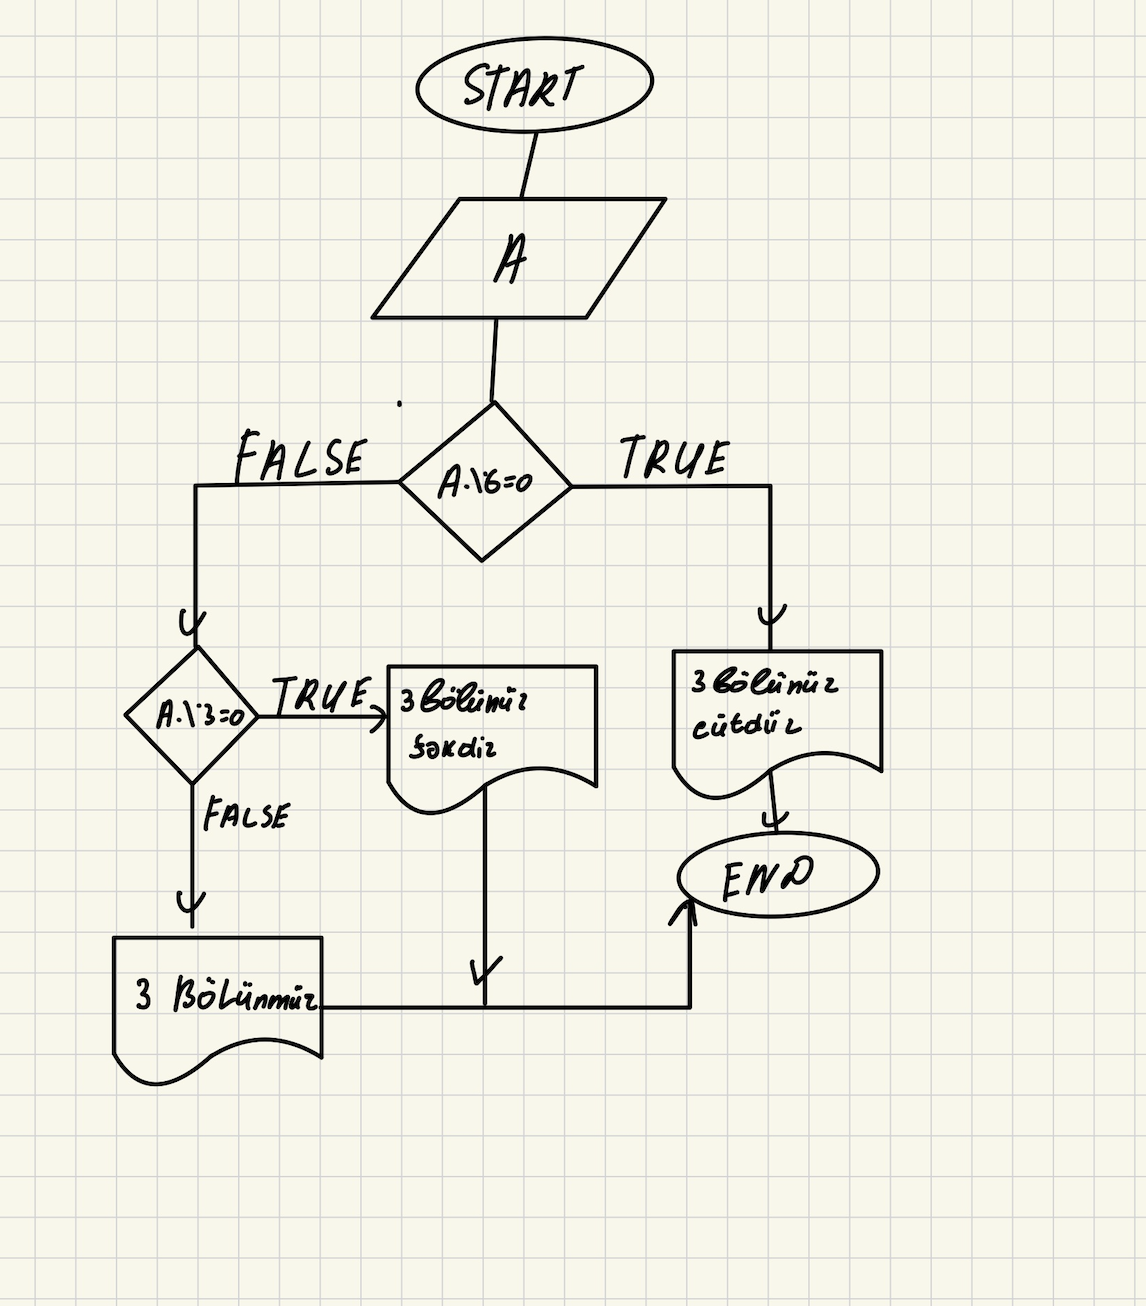 START
A
FALSE
TRUE
A.\.6=0
A.\.3=0
TRUE
3 Bölünür
təkdir
3 Bölünür
cütdür
FALSE
END
3 Bölünmür